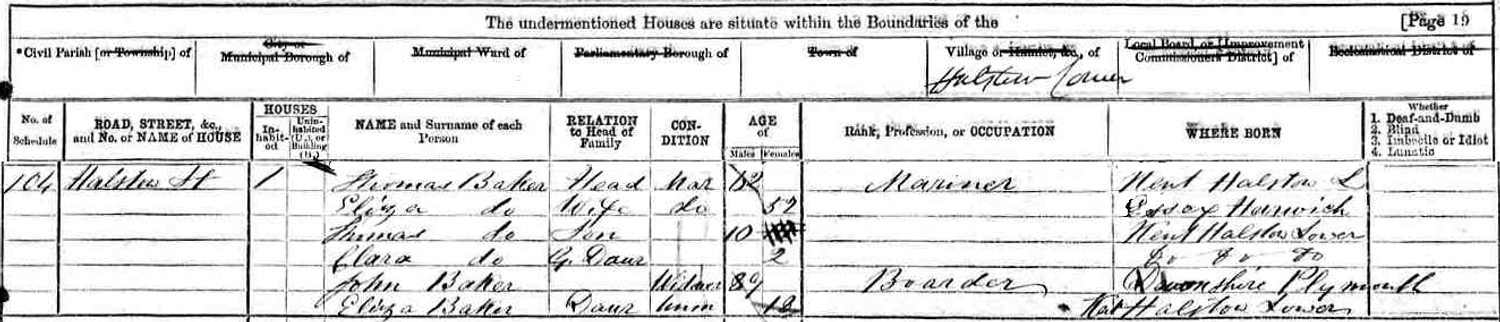 The undermentioned Houses are situate within the Boundaries of the [Page 19
*Civil Parish [or Township] of City or Municipal Borough of Municipal Ward of Parliamentary Borough of Town of Village or Hamlet, &c., of Local Board, or [Improvement Commissioners District] of Ecclesiastical District of
Halstow Lower
No. of Schedule ROAD, STREET, &c., and No. or NAME of HOUSE HOUSES In-habit-ed Unin-habited (U.), or Building (B.) NAME and Surname of each Person RELATION to Head of Family CON-DITION AGE of Males Females Rank, Profession, or OCCUPATION WHERE BORN Whether 1. Deaf-and-Dumb 2. Blind 3. Imbecile or Idiot 4. Lunatic
104 Halstow 1 Thomas Baker Head Mar 52 Mariner Kent Halstow L
Eliza do Wife do 52 Essex Harwich
Thomas do Son 10 Kent Halstow Lower
Clara do G. Daur 2 do do do
John Baker Widower 89 Boarder Devonshire Plymouth
Eliza Baker Daur unm 18 Kent Halstow Lower